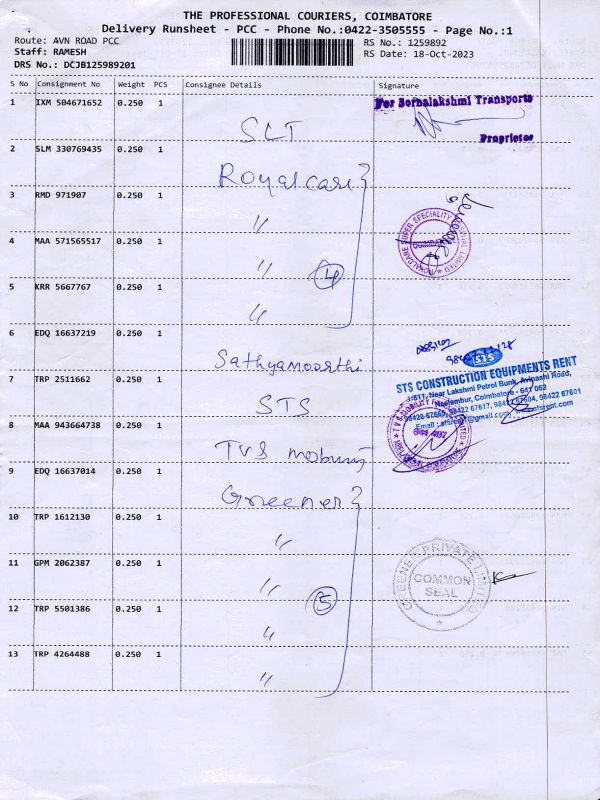 THE PROFESSIONAL COURIERS, COIMBATORE
Delivery Runsheet - PCC - Phone No.:0422-3505555 - Page No.:1
Route: AVN ROAD PCC
RS No.: 1259892
Staff: RAMESH
RS Date: 18-Oct-2023
DRS No.: DCJB125989201
S No Consignment No Weight PCS Consignee Details Signature
1 IXM 504671652 0.250 1
For Sornalakshmi Transports
SLT
Proprietor
2 SLM 330769435 0.250 1
Royalcare }
3 RMD 971907 0.250 1
"
ROYALCARE SUPER SPECIALITY HOSPITAL LIMITED
COIMBATORE
4 MAA 571565517 0.250 1
" 4
5 KRR 5667767 0.250 1
"
6 EDQ 16637219 0.250 1
Sathyamoorthi
STS
STS CONSTRUCTION EQUIPMENTS RENT
7 TRP 2511662 0.250 1
Near Lakshmi Petrol Bunk, Avinashi Road,
Neelambur, Coimbatore - 641 062
STS
8 MAA 943664738 0.250 1
TVS mobility
TVS MOBILITY
9 EDQ 16637014 0.250 1
Greener }
10 TRP 1612130 0.250 1
"
11 GPM 2062387 0.250 1
GREENER PRIVATE LIMITED
COMMON
SEAL
" 5
12 TRP 5501386 0.250 1
"
13 TRP 4264488 0.250 1
"